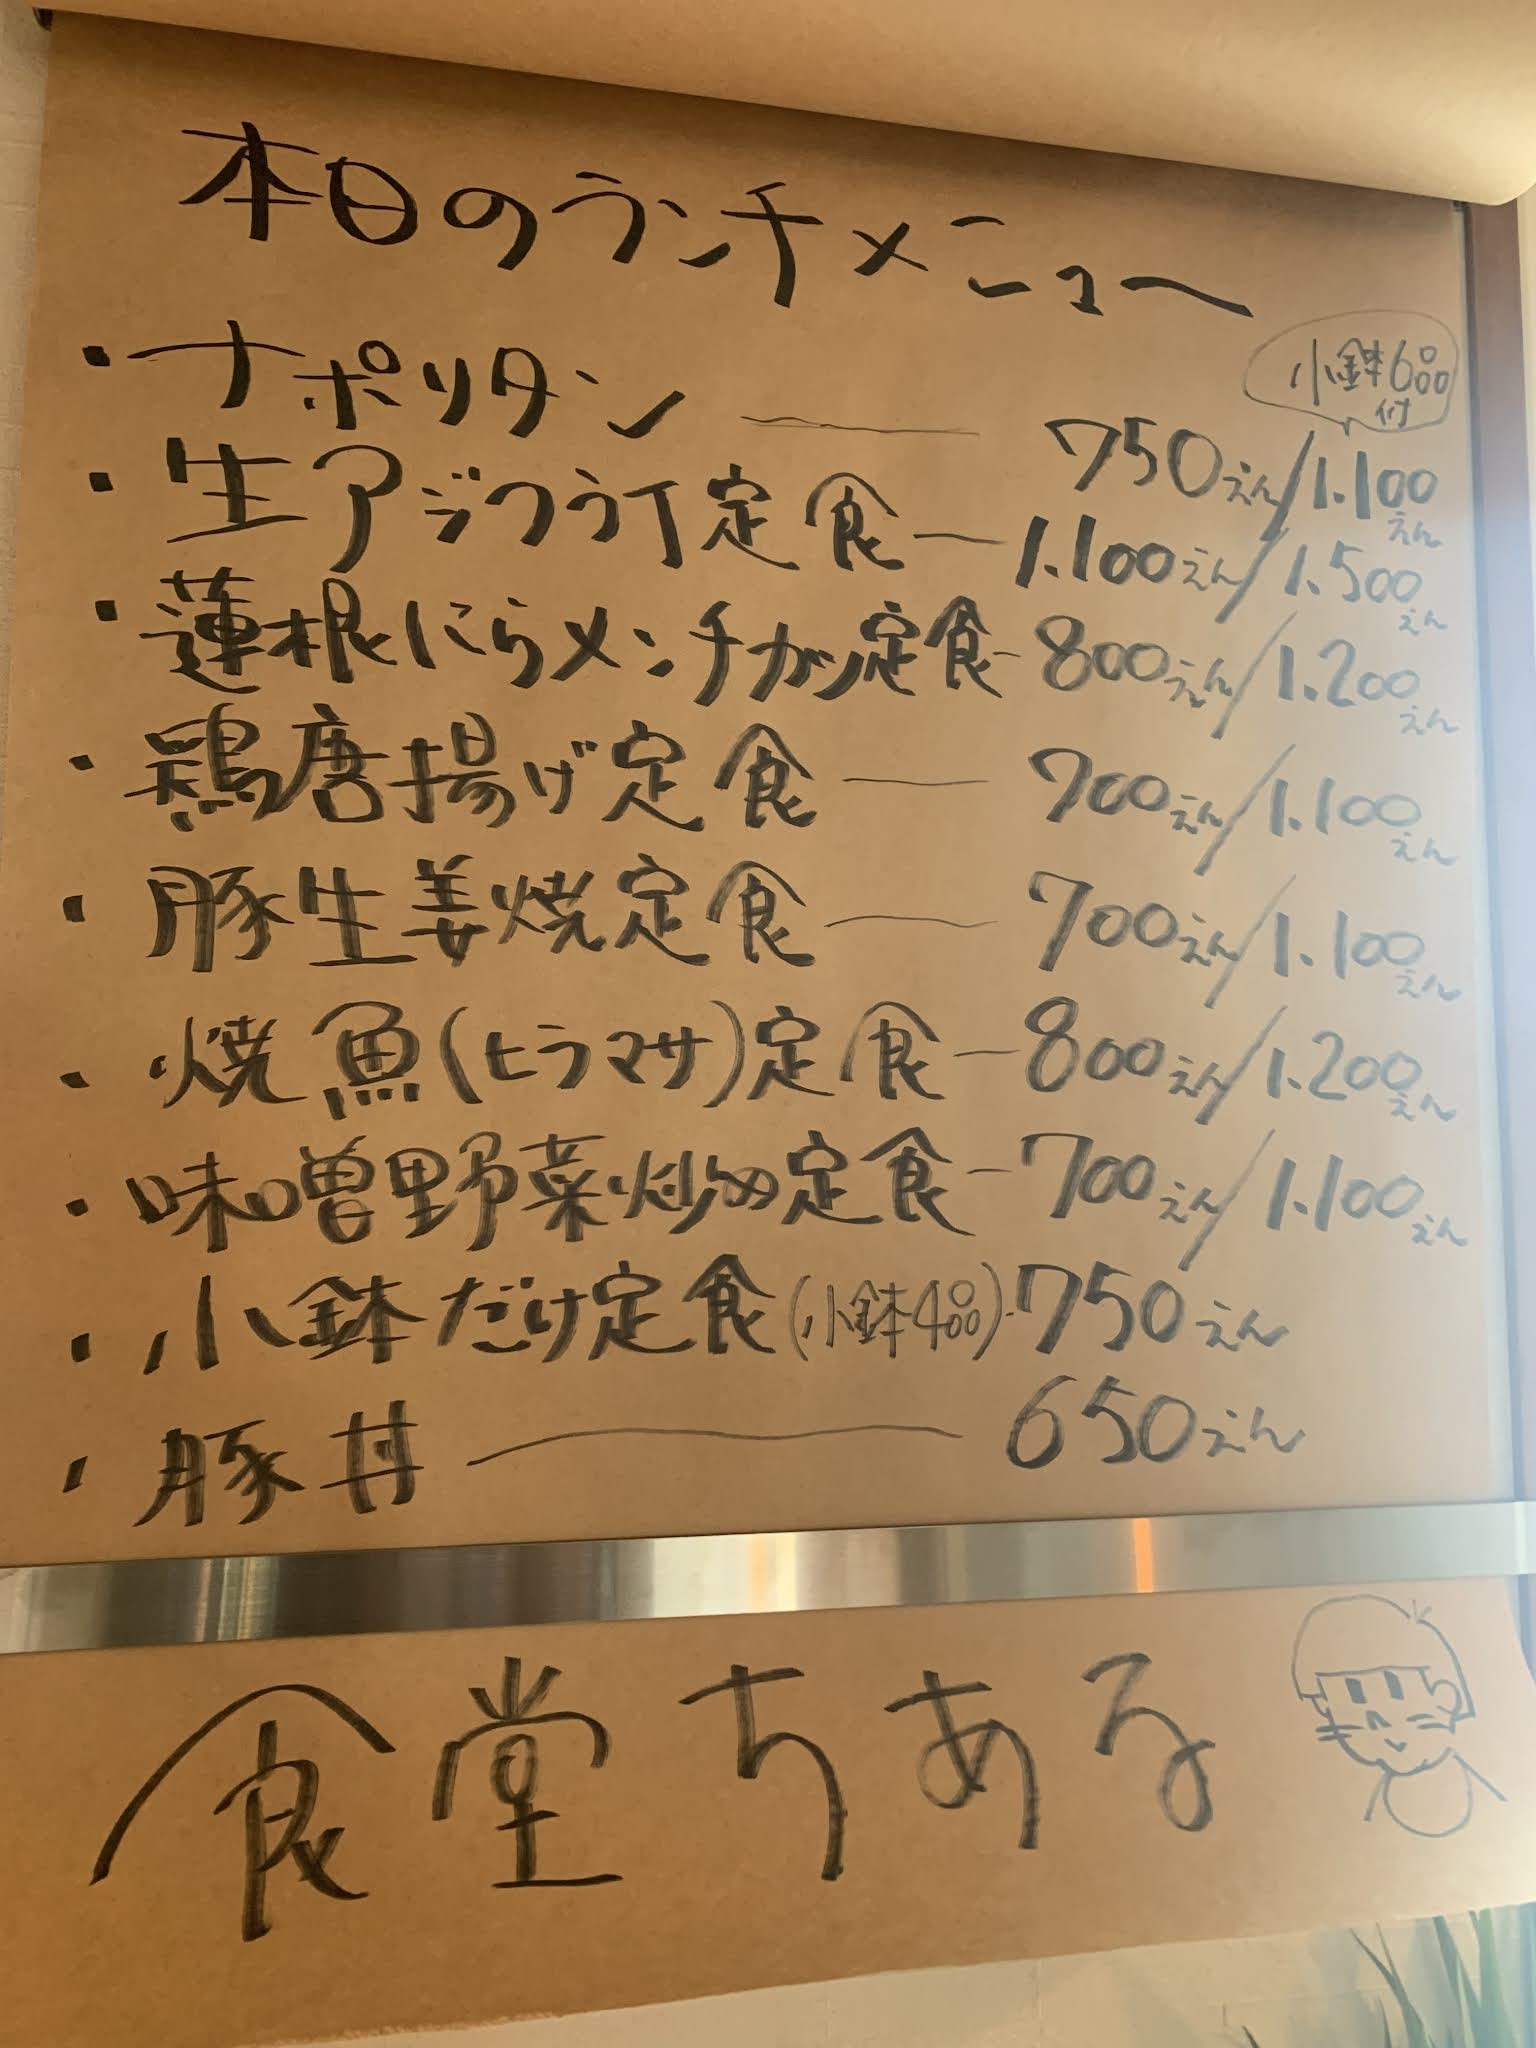 本日のランチメニュー
小鉢6品
付
・ナポリタン — 750えん/1.100えん
・生アジフライ定食 — 1.100えん/1.500えん
・蓮根にらメンチカツ定食 - 800えん/1.200えん
・鶏唐揚げ定食 — 700えん/1.100えん
・豚生姜焼定食 — 700えん/1.100えん
・焼魚(ヒラマサ)定食 — 800えん/1.200えん
・味噌野菜炒め定食 - 700えん/1.100えん
・小鉢だけ定食(小鉢4品)- 750えん
・豚丼 — 650えん
食堂ちある